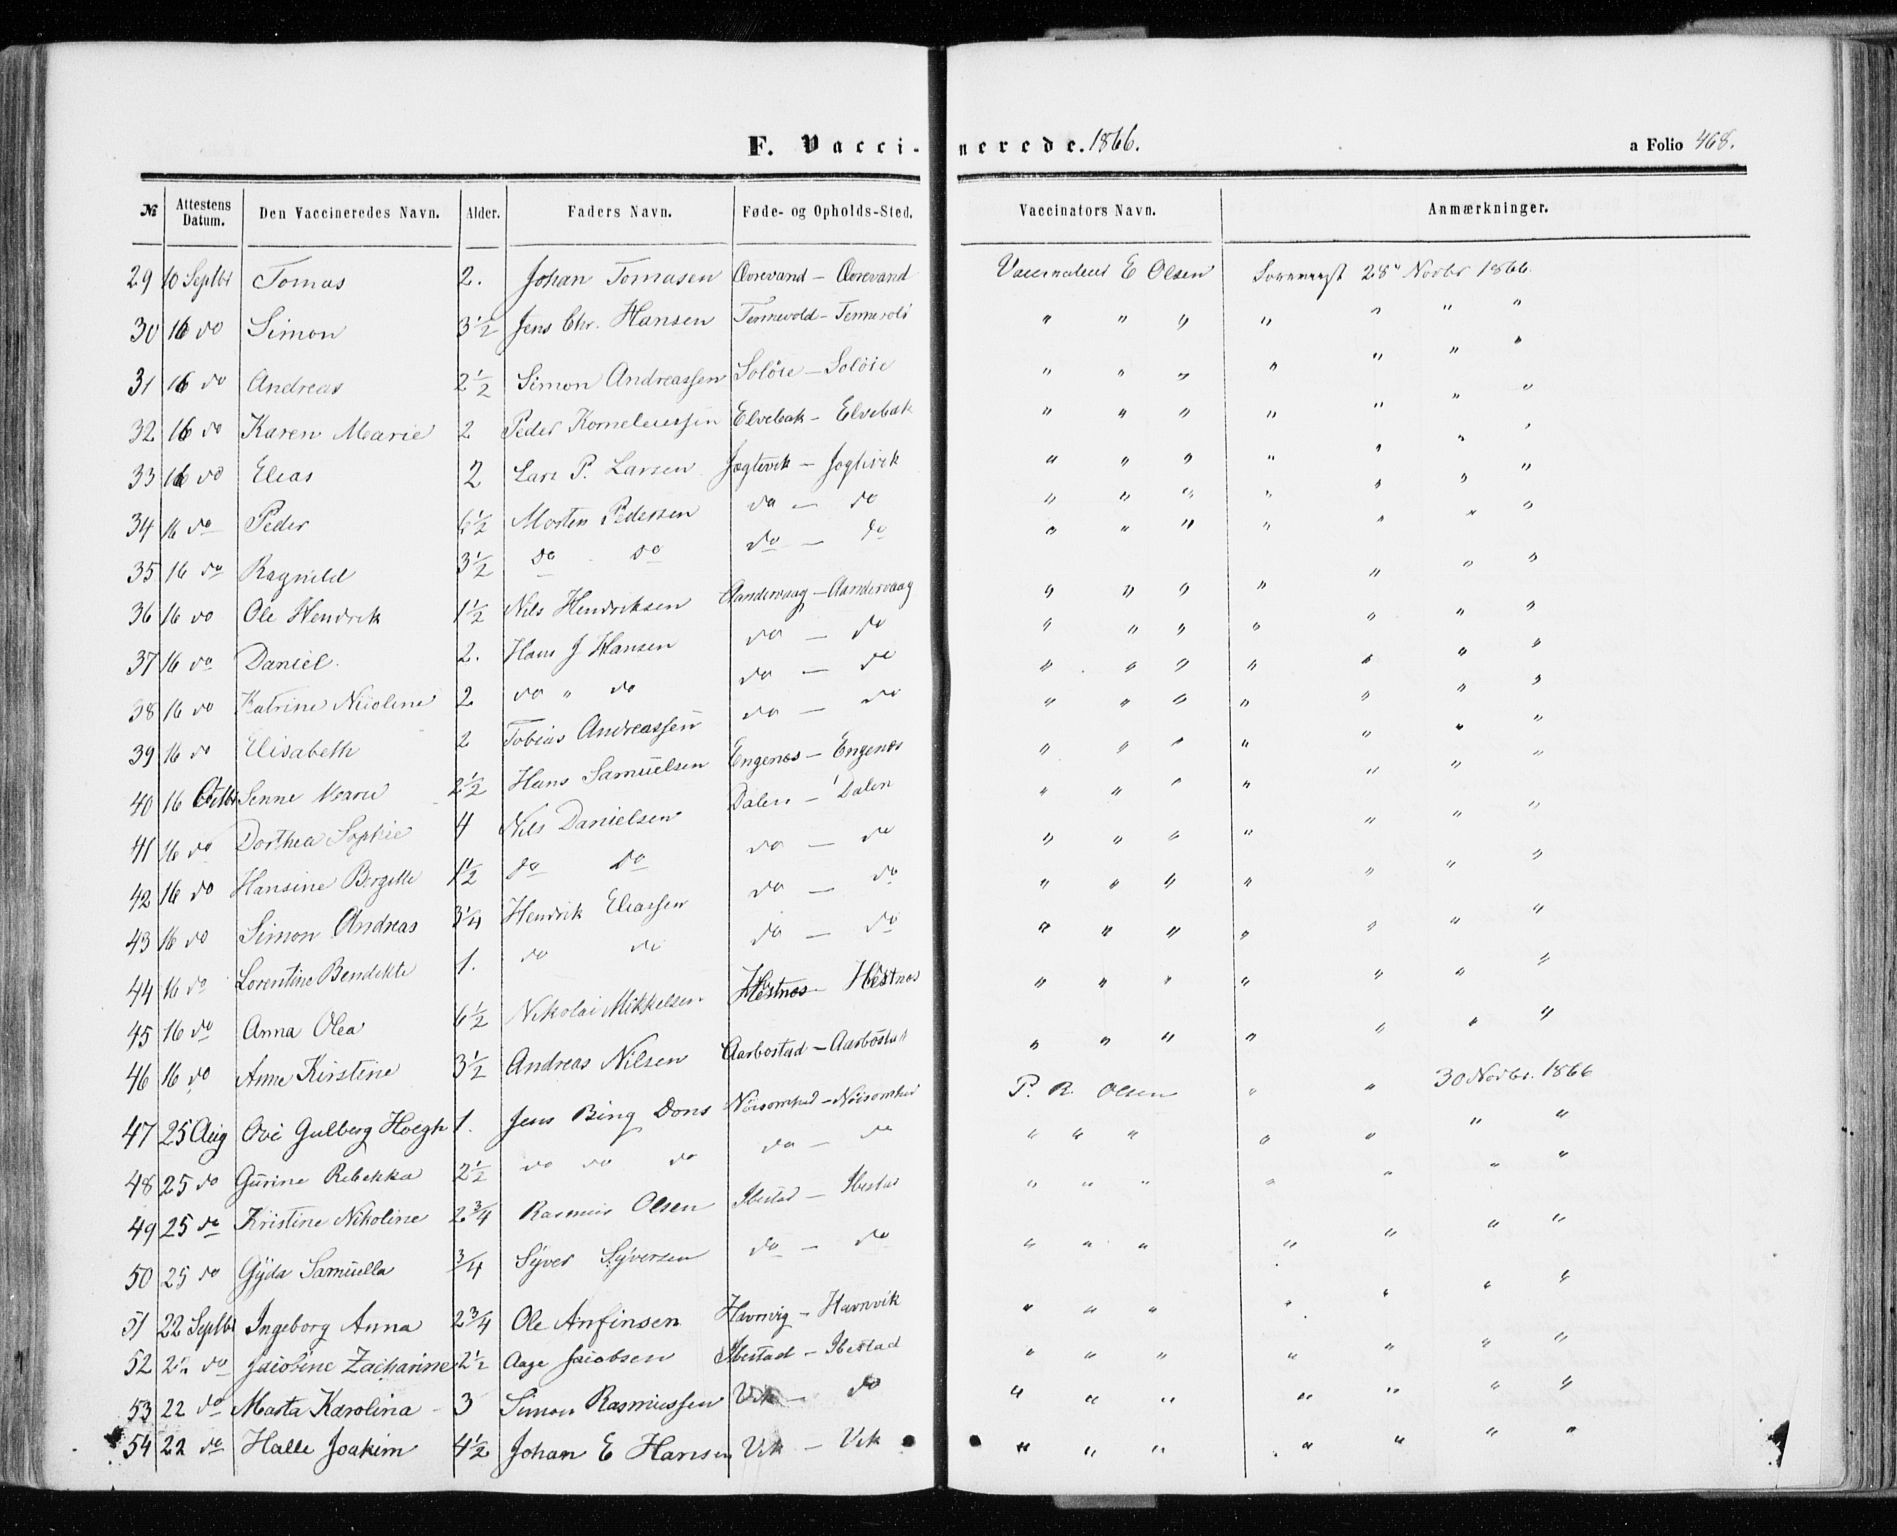 F. Vacci-nerede. 1866. a Folio 468.
№ Attestens Datum. Den Vaccineredes Navn. Alder. Faders Navn. Føde- og Opholds-Sted. Vaccinators Navn. Anmærkninger.
29 10 Septbr Tomas 2. Johan Tomasen Aarevand – Aarevand E Olsen 28de Novbr 1866.
30 16 do Simon 3½ Jens Chr. Hansen Tennevold – Tennevold " " " " " " "
31 16 do Andreas 2½ Simon Andreassen Soløie – Soløie " " " " " " "
32 16 do Karen Marie 2 Peder Korneleussen Elvebak – Elvebak " " " " " " "
33 16 do Elias 2 Lars P. Larsen Jøgtevik – Jøgtevik " " " " " " "
34 16 do Peder 6½ Morten Pedersen do – do " " " " " " "
35 16 do Ragnild 3½ do do do – do " " " " " " "
36 16 do Ole Hendrik 1½ Nils Hendriksen Aandervaag – Aandervaag " " " " " " "
37 16 do Daniel 2. Hans J Hansen do – do " " " " " " "
38 16 do Katrine Nicoline 2 do " do do – do " " " " " " "
39 16 do Elisabeth 2 Tobias Andreassen do – do " " " " " " "
40 16 Octbr Senne Marie 2½ Hans Samuelsen Engenes – Engenes " " " " " " "
41 16 do Dorthea Sophie 4 Nils Danielsen Dalen – Dalen " " " " " " "
42 16 do Hansine Bergitte 1½ do do do – do " " " " " " "
43 16 do Simon Andreas 3¼ Hendrik Eliassen do – do " " " " " " "
44 16 do Lorentine Bendikte 1. do do do – do " " " " " " "
45 16 do Anna Olea 6½ Nikolai Mikkelsen Hestnes – Hestnes " " " " " " "
46 16 do Anne Kirstine 3½ Andreas Nilsen Aarbostad – Aarbostad " " " " " " "
47 25 Aug Ove Gulberg Hoegh 1. Jens Bing Dons Nøisomhed – Nøisomhed P. R. Olsen " " 30 Novbr. 1866
48 25 do Gurine Rebekka 2½ do do do do – do " " " " " " "
49 25 do Kristine Nikoline 2¾ Rasmus Olsen Ibestad – Ibestad " " " " " " "
50 25 do Gyda Samuella ¾ Syver Syversen do – do " " " " " " "
51 22 Septbr Ingeborg Anna 2¾ Ole Anfinsen Havnvig – Havnvik " " " " " " "
52 22 do Jacobine Zacharine 2½ Aage Jacobsen Ibestad – Ibestad " " " " " " "
53 22 do Marta Karolina 3 Simon Rasmussen Vik – do " " " " " " "
54 22 do Halle Joakim 4½ Johan E Hansen Vik – Vik " " " " " " "